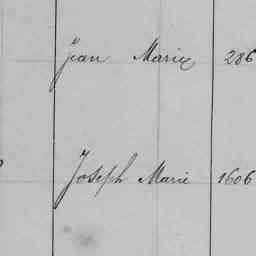 Jean Marie 286
Joseph Marie 1606